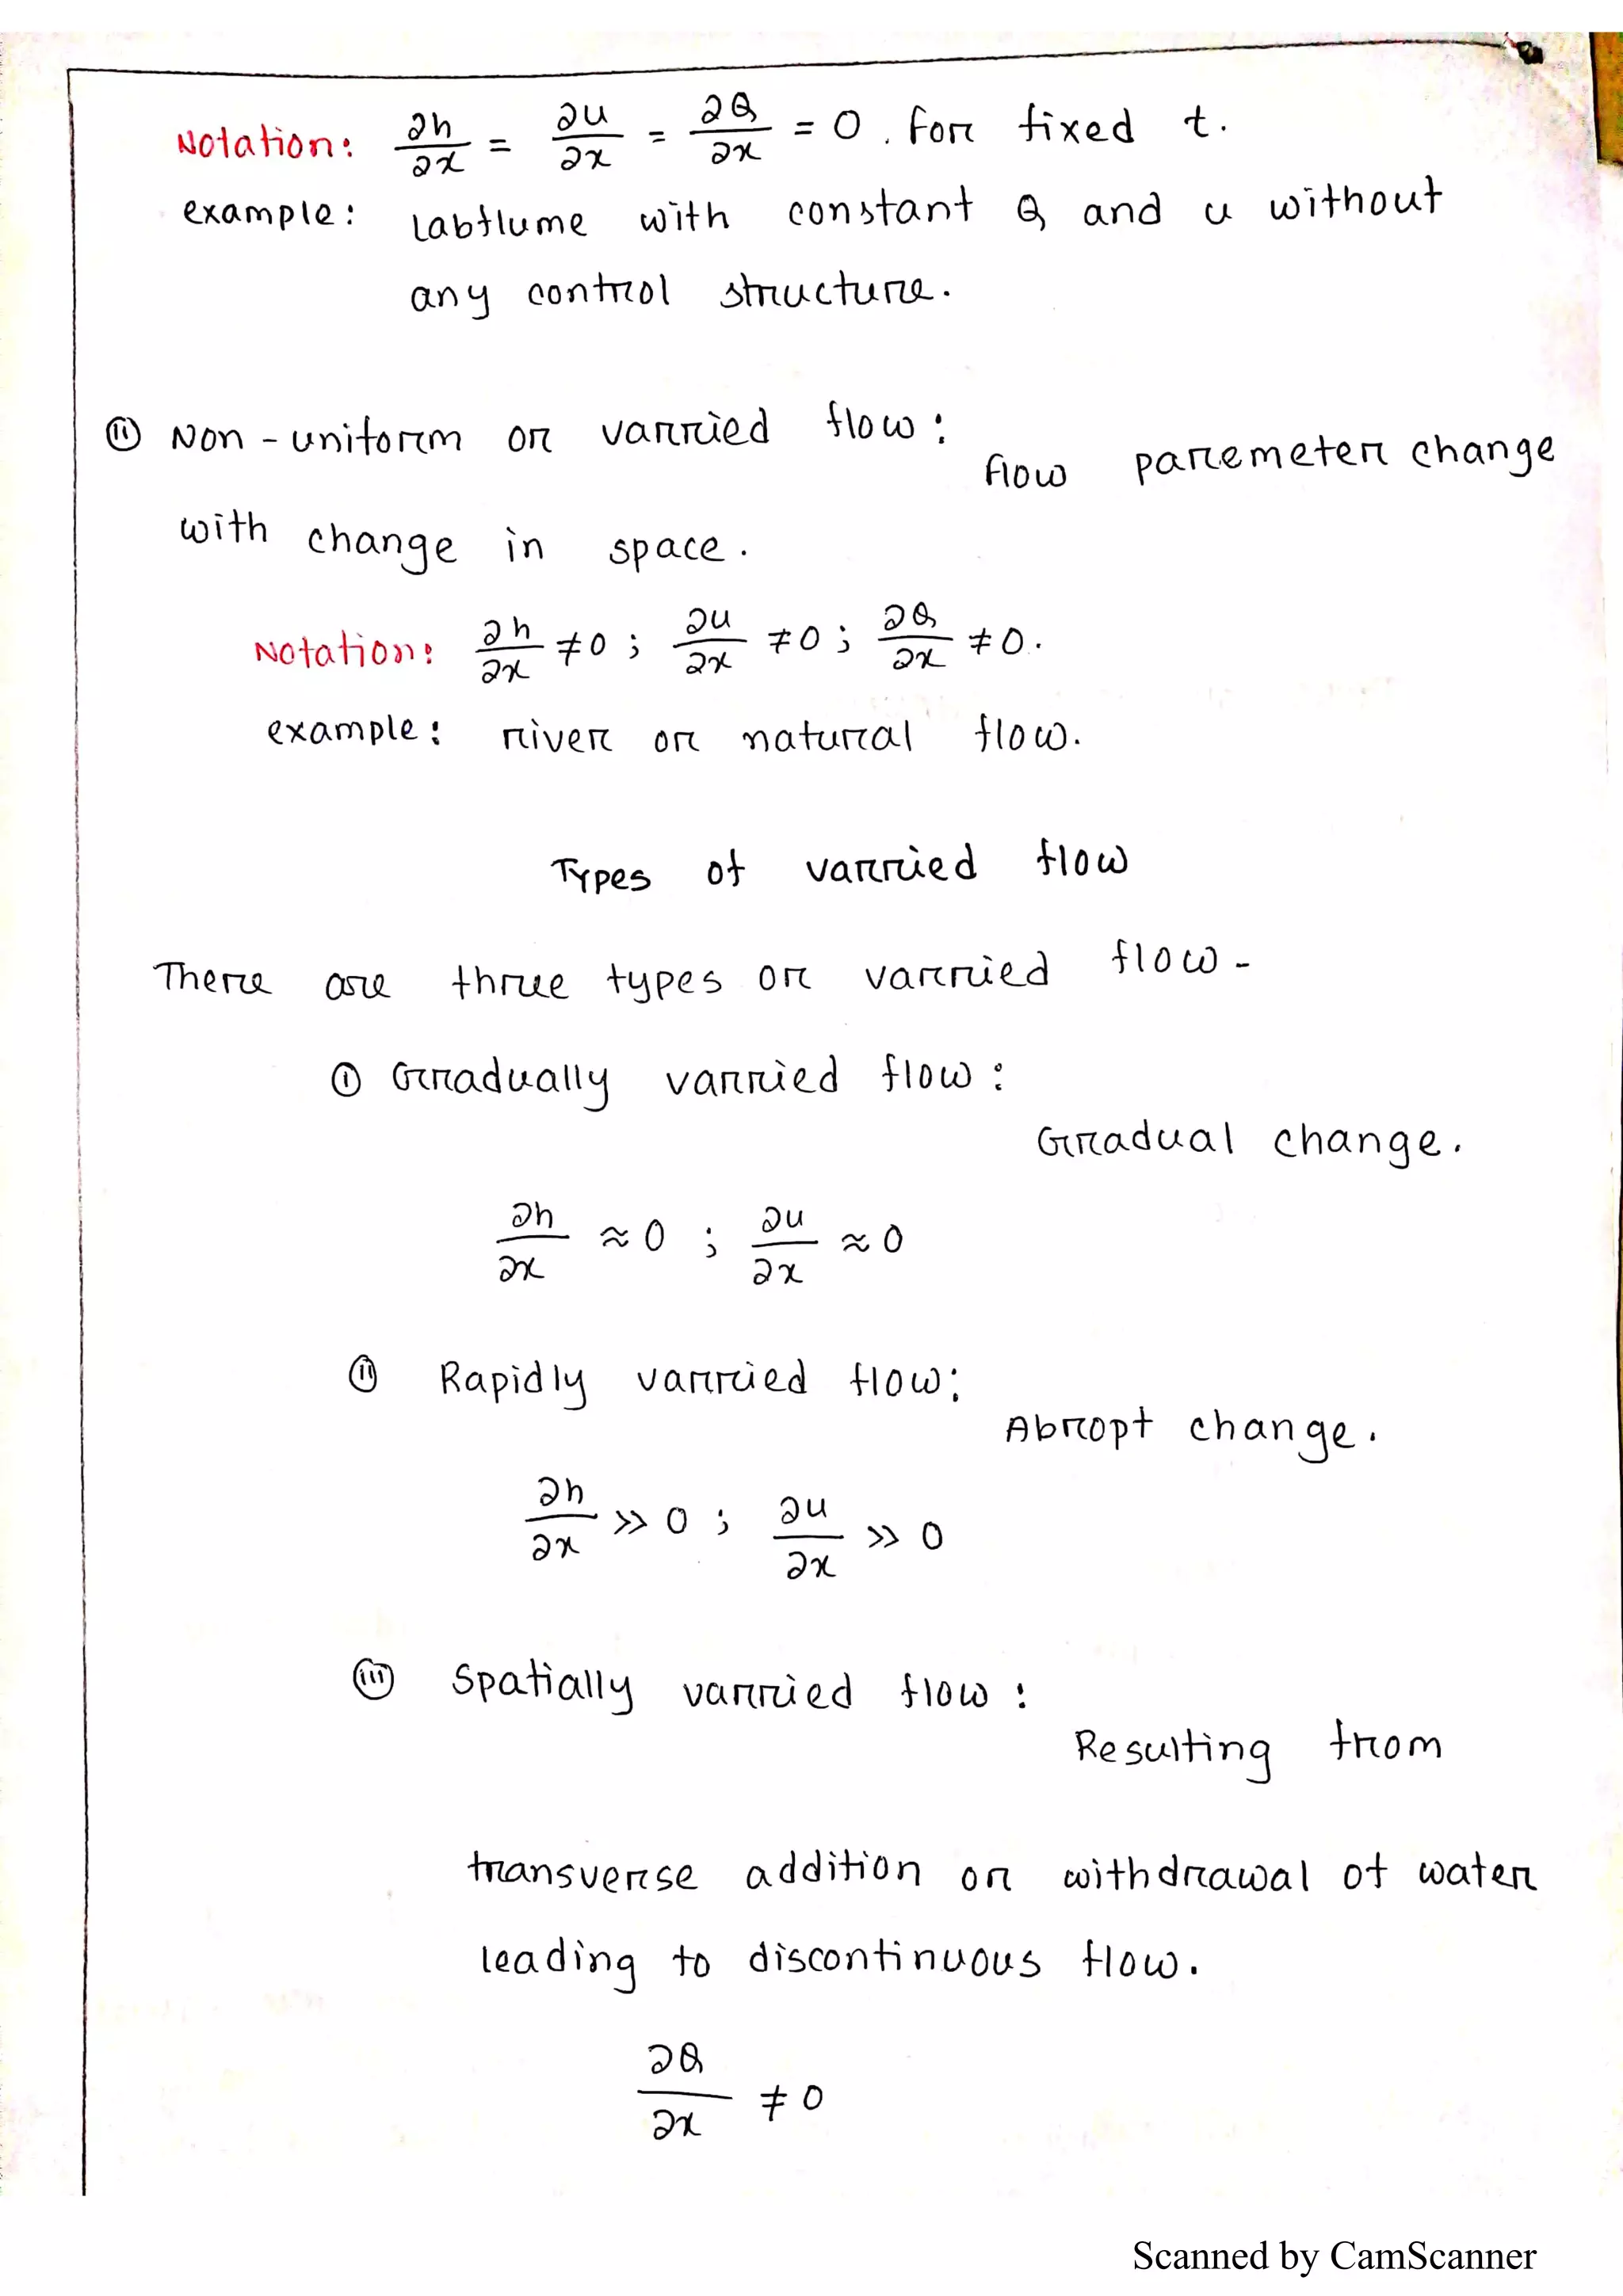 Notation: ∂h/∂x = ∂u/∂x = ∂Q/∂x = 0. For fixed t.
example: Labflume with constant Q and u without
any control structure.
(ii) Non-uniform or varried flow:
flow paremeter change
with change in space.
Notation: ∂h/∂x ≠ 0 ; ∂u/∂x ≠ 0 ; ∂Q/∂x ≠ 0.
example: river or natural flow.
Types of varried flow
There are three types or varried flow -
(i) Gradually varried flow:
Gradual change.
∂h/∂x ≈ 0 ; ∂u/∂x ≈ 0
(ii) Rapidly varried flow:
Abropt change.
∂h/∂x >> 0 ; ∂u/∂x >> 0
(iii) Spatially varried flow:
Resulting from
transverse addition or withdrawal of water
leading to discontinuous flow.
∂Q/∂x ≠ 0
Scanned by CamScanner